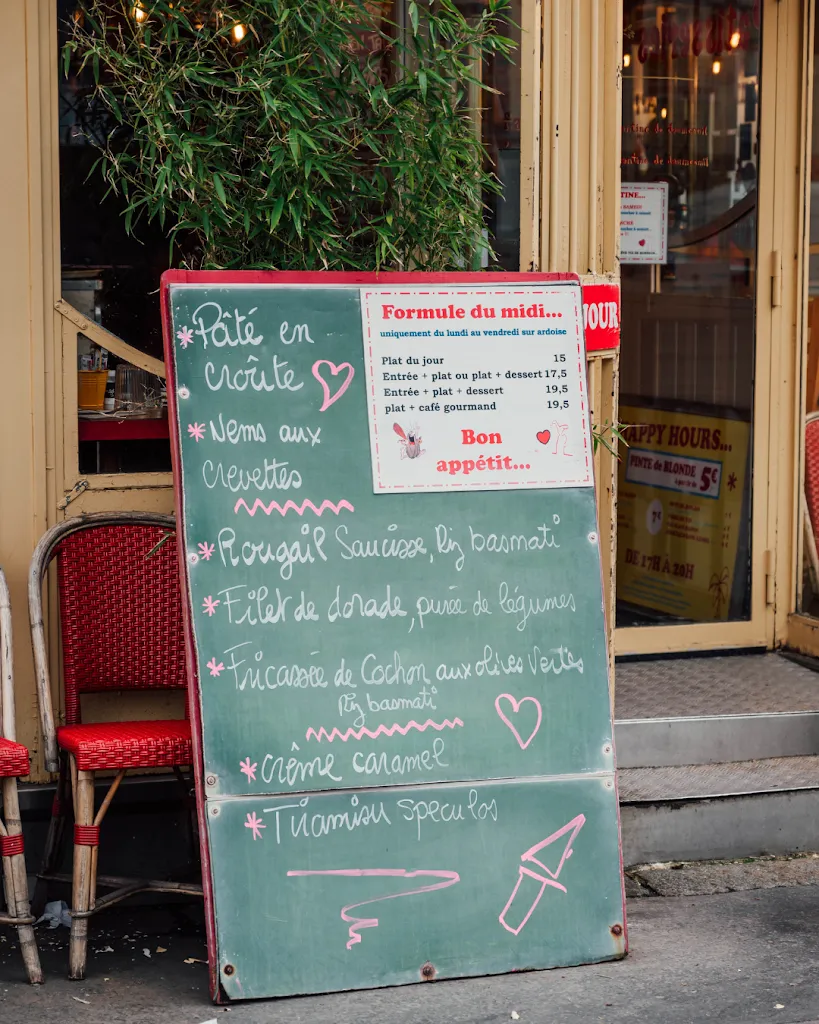 *Pâté en
croûte
*Nems aux
Crevettes
*Rougail Saucisse, Riz basmati
*Filet de dorade, purée de légumes
*Fricassée de Cochon aux olives Vertes
Riz basmati
*Crème caramel
*Tiramisu speculos
Formule du midi...
uniquement du lundi au vendredi sur ardoise
Plat du jour 15
Entrée + plat ou plat + dessert 17,5
Entrée + plat + dessert 19,5
plat + café gourmand 19,5
Bon
appétit...
JOUR
TINE...
HAPPY HOURS...
PINTE de BLONDE 5€
7€
DE 17H À 20H